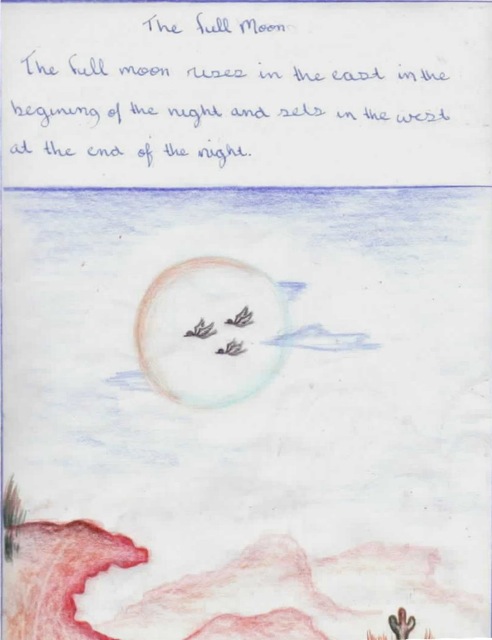 The full Moon
The full moon rises in the east in the
begining of the night and sets in the west
at the end of the night.